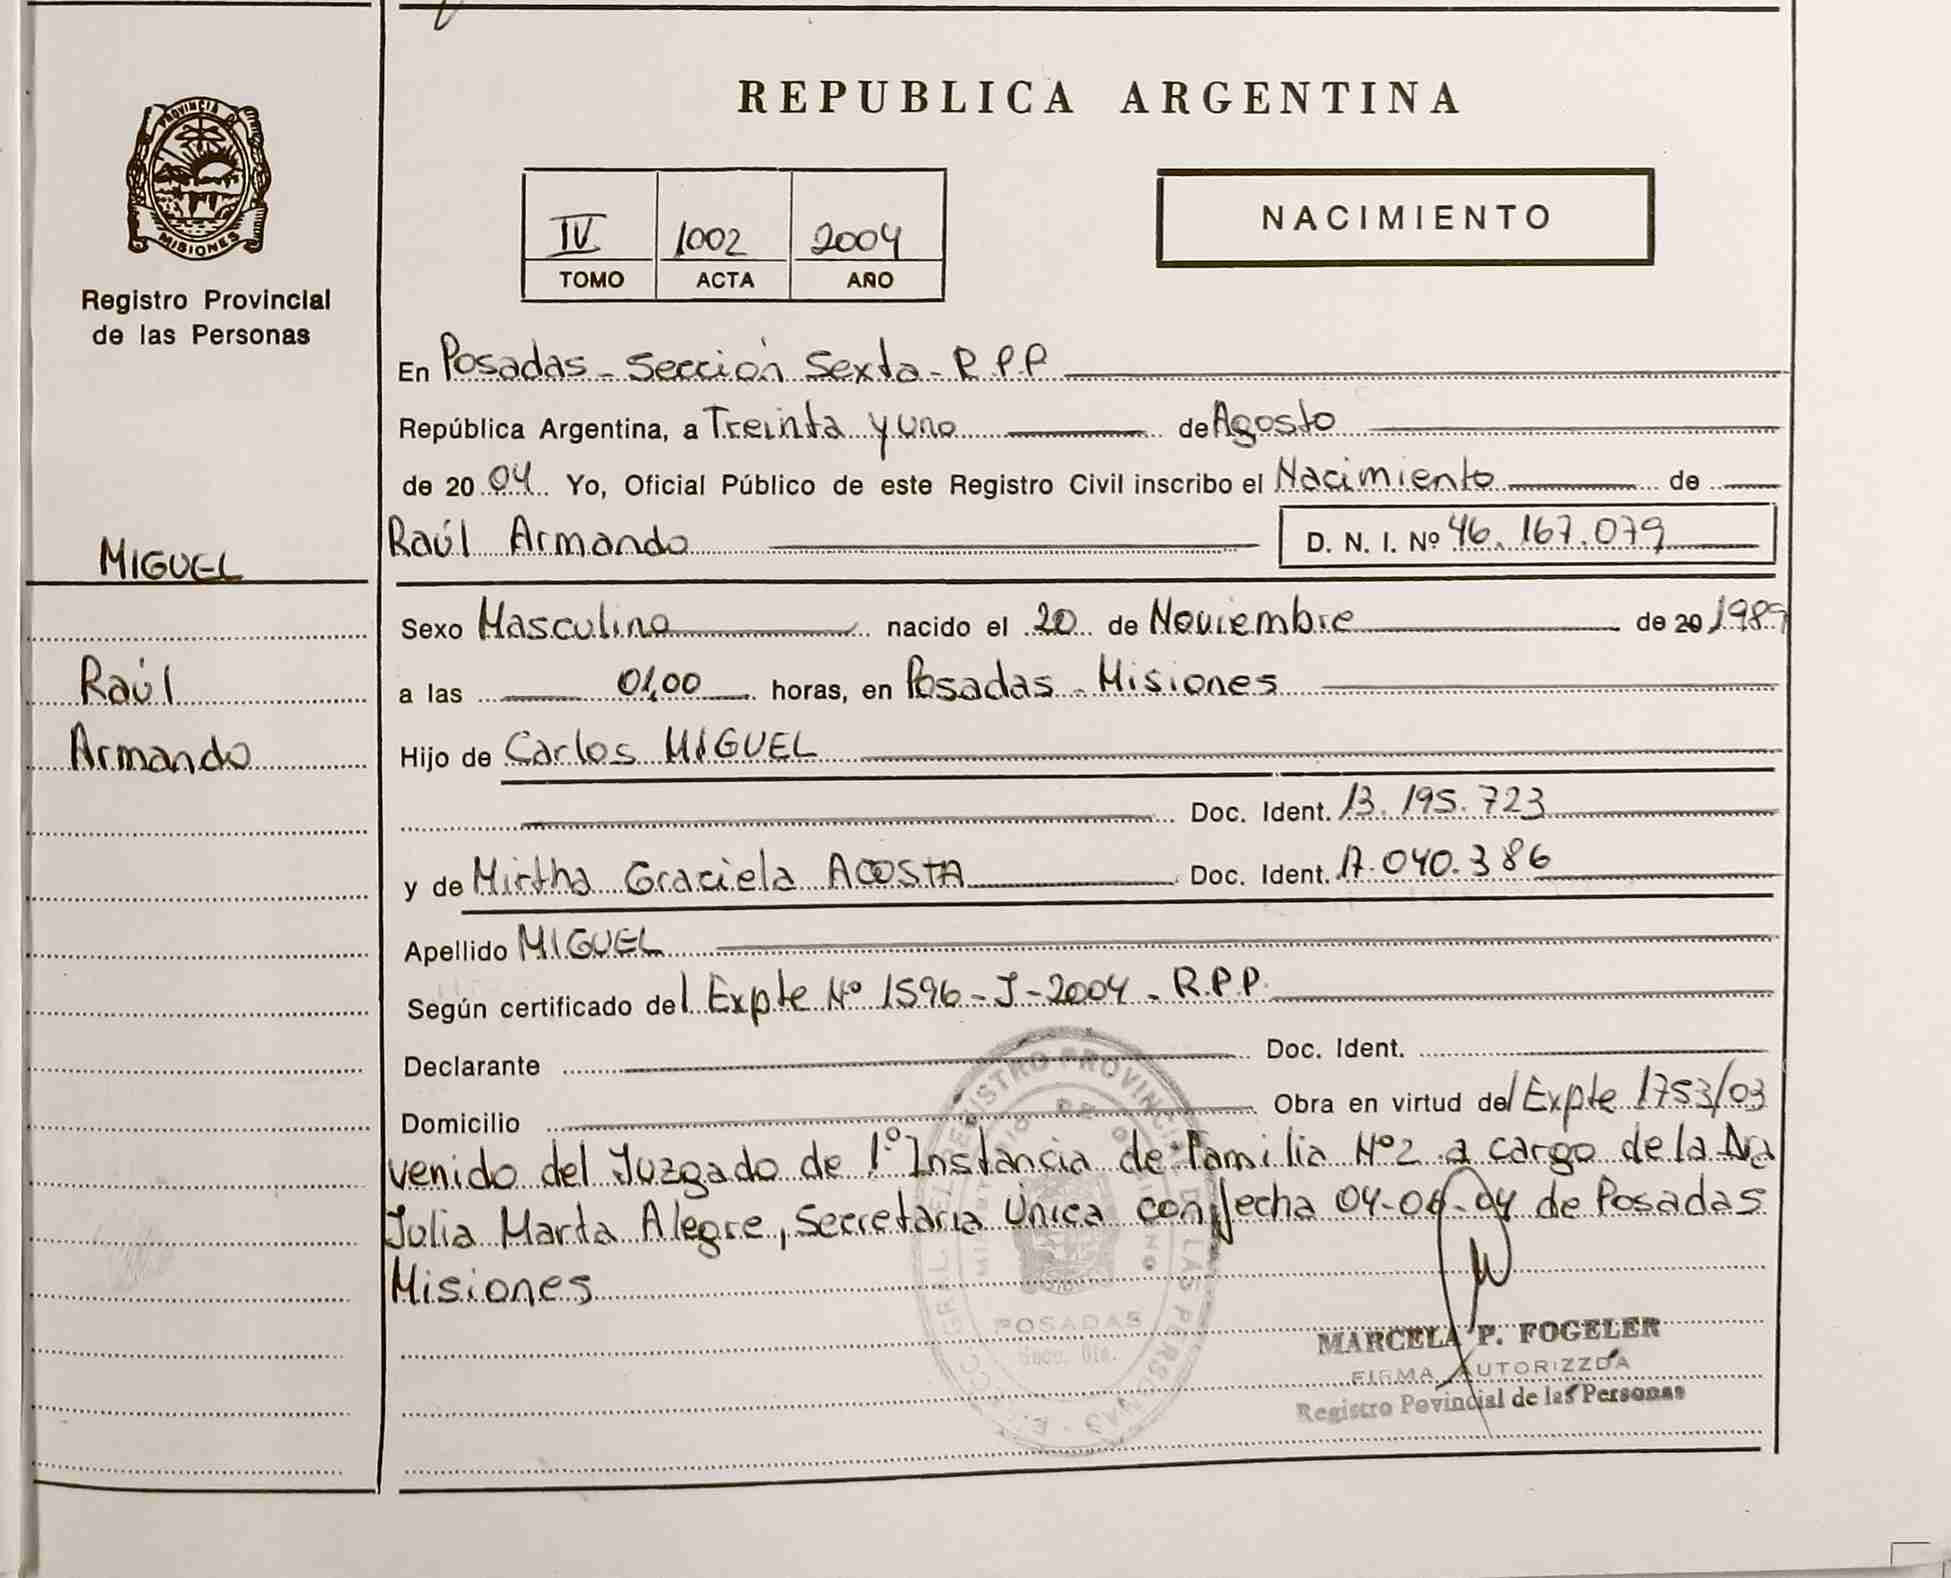 REPUBLICA ARGENTINA
PROVINCIA DE
MISIONES
Registro Provincial
de las Personas
IV 1002 2004
TOMO ACTA AÑO
NACIMIENTO
En Posadas - Sección Sexta - R.P.P
República Argentina, a Treinta y uno de Agosto
de 20 04 Yo, Oficial Público de este Registro Civil inscribo el Nacimiento de
MIGUEL
Raúl Armando D. N. I. Nº 46.167.079
Sexo Masculino nacido el 20 de Noviembre de 20 1989
Raúl
a las 01,00 horas, en Posadas - Misiones
Armando
Hijo de Carlos MIGUEL
Doc. Ident. 13.195.723
y de Mirtha Graciela ACOSTA Doc. Ident. 17.040.386
Apellido MIGUEL
Según certificado del Expte Nº 1596-J-2004 - R.P.P.
Declarante Doc. Ident.
Domicilio Obra en virtud del Expte 1753/03
venido del Juzgado de 1º Instancia de Familia Nº2 a cargo de la Dra
Julia Marta Alegre, Secretaria Unica con fecha 04-06-04 de Posadas
Misiones
POSADAS
MARCELA P. FOGELER
FIRMA AUTORIZZDA
Registro Povincial de las Personas